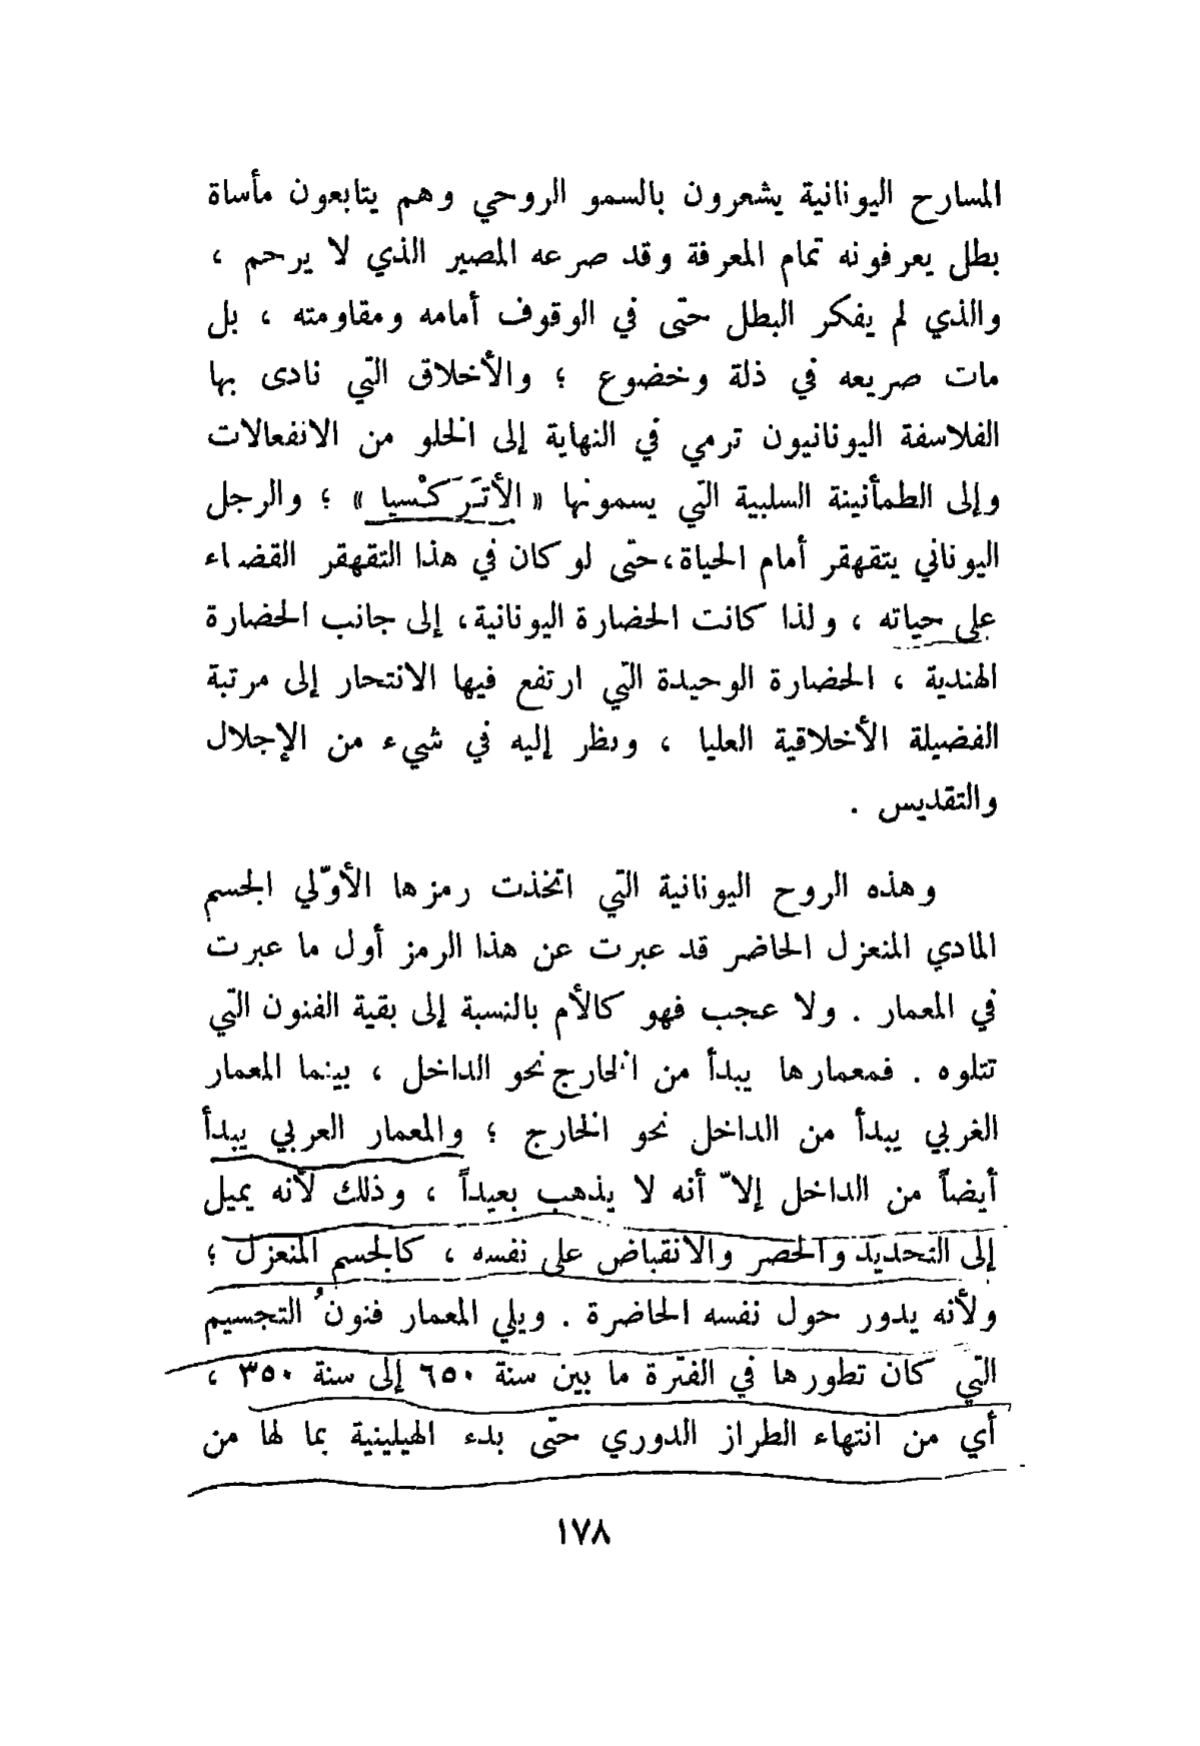 المسارح اليونانية يشعرون بالسمو الروحي وهم يتابعون مأساة
بطل يعرفونه تمام المعرفة وقد صرعه المصير الذي لا يرحم ،
والذي لم يفكر البطل حتى في الوقوف أمامه ومقاومته ، بل
مات صريعه في ذلة وخضوع ؛ والأخلاق التي نادى بها
الفلاسفة اليونانيون ترمي في النهاية إلى الخلو من الانفعالات
وإلى الطمأنينة السلبية التي يسمونها « الأتَرَكْسيا » ؛ والرجل
اليوناني يتقهقر أمام الحياة، حتى لو كان في هذا التقهقر القضاء
على حياته ، ولذا كانت الحضارة اليونانية، إلى جانب الحضارة
الهندية ، الحضارة الوحيدة التي ارتفع فيها الانتحار إلى مرتبة
الفضيلة الأخلاقية العليا ، ونظر إليه في شيء من الإجلال
والتقديس .
وهذه الروح اليونانية التي اتخذت رمزها الأوّلي الجسم
المادي المنعزل الحاضر قد عبرت عن هذا الرمز أول ما عبرت
في المعمار . ولا عجب فهو كالأم بالنسبة إلى بقية الفنون التي
تتلوه . فمعمارها يبدأ من الخارج نحو الداخل ، بينما المعمار
الغربي يبدأ من الداخل نحو الخارج ؛ والمعمار العربي يبدأ
أيضاً من الداخل إلاّ أنه لا يذهب بعيداً ، وذلك لأنه يميل
إلى التحديد والحصر والانقباض على نفسه ، كالجسم المنعزل ؛
ولأنه يدور حول نفسه الحاضرة . ويلي المعمار فنونُ التجسيم
التي كان تطورها في الفترة ما بين سنة ٦٥٠ إلى سنة ٣٥٠ ،
أي من انتهاء الطراز الدوري حتى بدء الهيلينية بما لها من
١٧٨